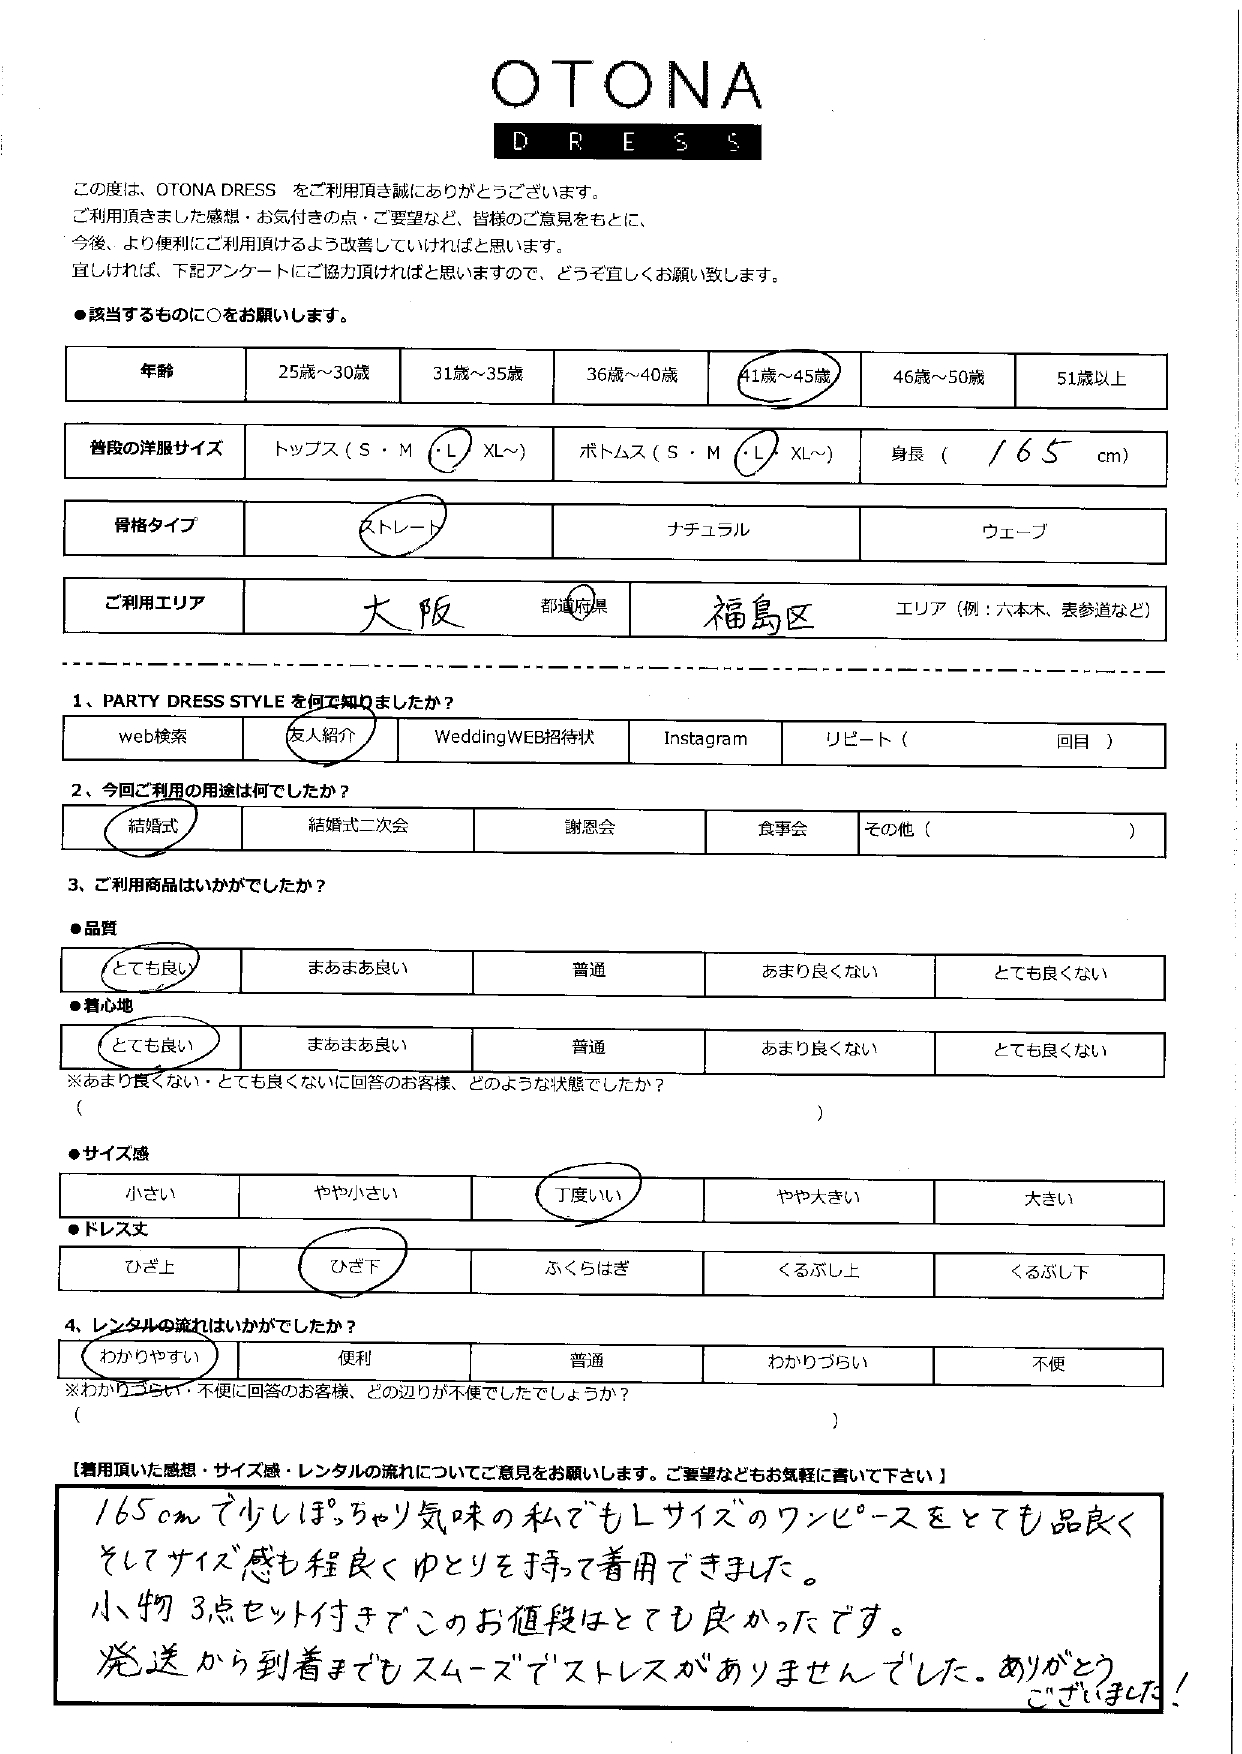 OTONA
DRESS
この度は、OTONA DRESS をご利用頂き誠にありがとうございます。
ご利用頂きました感想・お気付きの点・ご要望など、皆様のご意見をもとに、
今後、より便利にご利用頂けるよう改善していければと思います。
宜しければ、下記アンケートにご協力頂ければと思いますので、どうぞ宜しくお願い致します。
●該当するものに○をお願いします。
年齢 25歳～30歳 31歳～35歳 36歳～40歳 41歳～45歳 46歳～50歳 51歳以上
普段の洋服サイズ トップス ( S ・ M ・L XL～) ボトムス ( S ・ M ・L・ XL～) 身長 ( 165 cm)
骨格タイプ ストレート ナチュラル ウェーブ
ご利用エリア 大阪 都道府県 福島区 エリア（例：六本木、表参道など）
1、PARTY DRESS STYLE を何で知りましたか？
web検索 友人紹介 WeddingWEB招待状 Instagram リピート（ 回目 ）
2、今回ご利用の用途は何でしたか？
結婚式 結婚式二次会 謝恩会 食事会 その他（ ）
3、ご利用商品はいかがでしたか？
●品質
とても良い まあまあ良い 普通 あまり良くない とても良くない
●着心地
とても良い まあまあ良い 普通 あまり良くない とても良くない
※あまり良くない・とても良くないに回答のお客様、どのような状態でしたか？
（ ）
●サイズ感
小さい やや小さい 丁度いい やや大きい 大きい
●ドレス丈
ひざ上 ひざ下 ふくらはぎ くるぶし上 くるぶし下
4、レンタルの流れはいかがでしたか？
わかりやすい 便利 普通 わかりづらい 不便
※わかりづらい・不便に回答のお客様、どの辺りが不便でしたでしょうか？
（ ）
【着用頂いた感想・サイズ感・レンタルの流れについてご意見をお願いします。ご要望などもお気軽に書いて下さい 】
165cmで少しぽっちゃり気味の私でもLサイズのワンピースをとても品良く
そしてサイズ感も程良くゆとりを持って着用できました。
小物 3点セット付きでこのお値段はとても良かったです。
発送から到着までもスムーズでストレスがありませんでした。ありがとう
ございました!